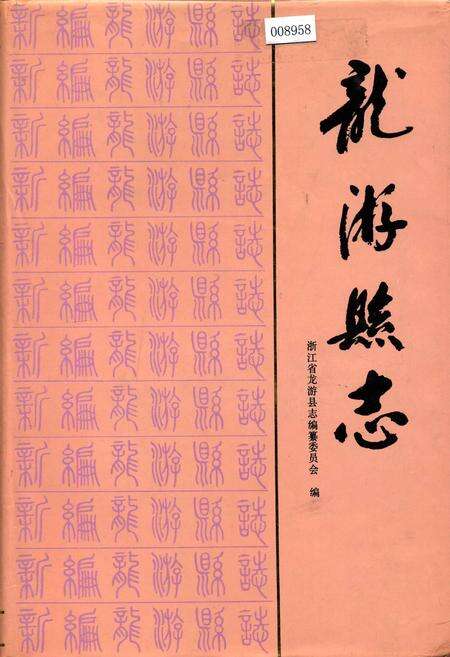 008958
龍游縣志
浙江省龙游县志编纂委员会 编
新編龍游縣誌
新編龍游縣誌
新編龍游縣誌
新編龍游縣誌
新編龍游縣誌
新編龍游縣誌
新編龍游縣誌
新編龍游縣誌
新編龍游縣誌
新編龍游縣誌
新編龍游縣誌
新編龍游縣誌